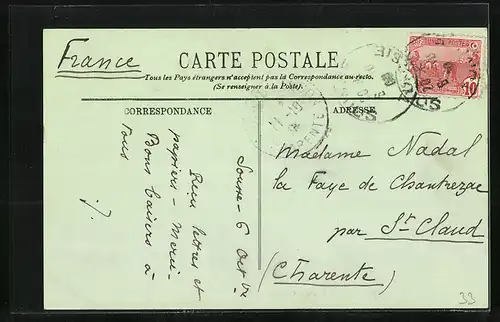 France
CARTE POSTALE
Tous les Pays étrangers n'acceptent pas la Correspondance au recto.
(Se renseigner à la Poste).
CORRESPONDANCE
ADRESSE
10
Sousse - 6 Oct
Reçu lettres et
papiers - Merci -
Bons baisers à
tous
Madame Nadal
la Faye de Chantrezac
par St Claud
(Charente)
33